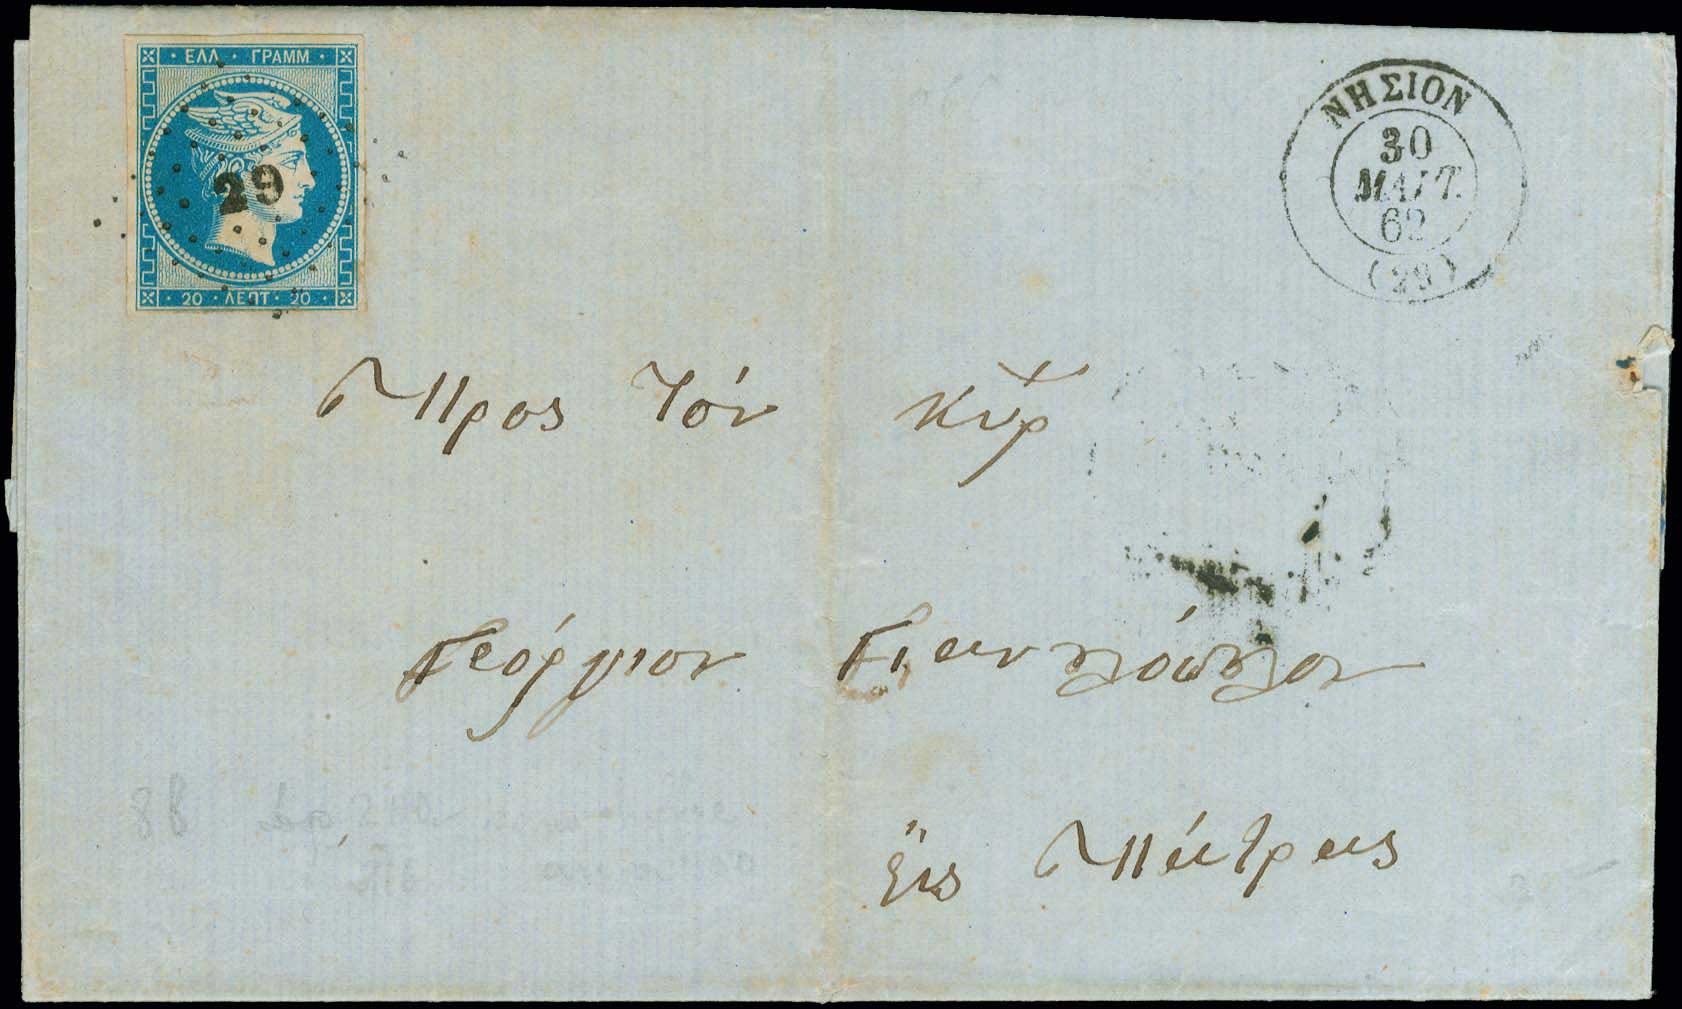 · ΕΛΛ · ΓΡΑΜΜ ·
29
· 20 · ΛΕΠΤ · 20 ·
ΝΗΣΙΟΝ
30
ΜΑΡΤ.
62
(29)
Προς τόν κύρ
Γεόργιον
Εἰς Πάτρας
88